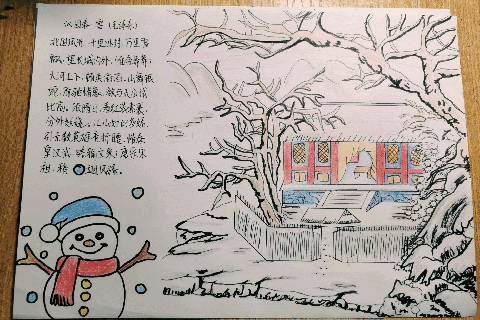 沁园春 雪 (毛泽东)
北国风光, 千里冰封, 万里雪
飘, 望长城内外, 惟余莽莽,
大河上下, 顿失滔滔, 山舞银
蛇, 原驰蜡象, 欲与天公试
比高, 须晴日, 看红装素裹,
分外妖娆, 江山如此多娇,
引无数英雄竞折腰, 惜秦
皇汉武, 略输文采; 唐宗宋
祖, 稍逊风骚。